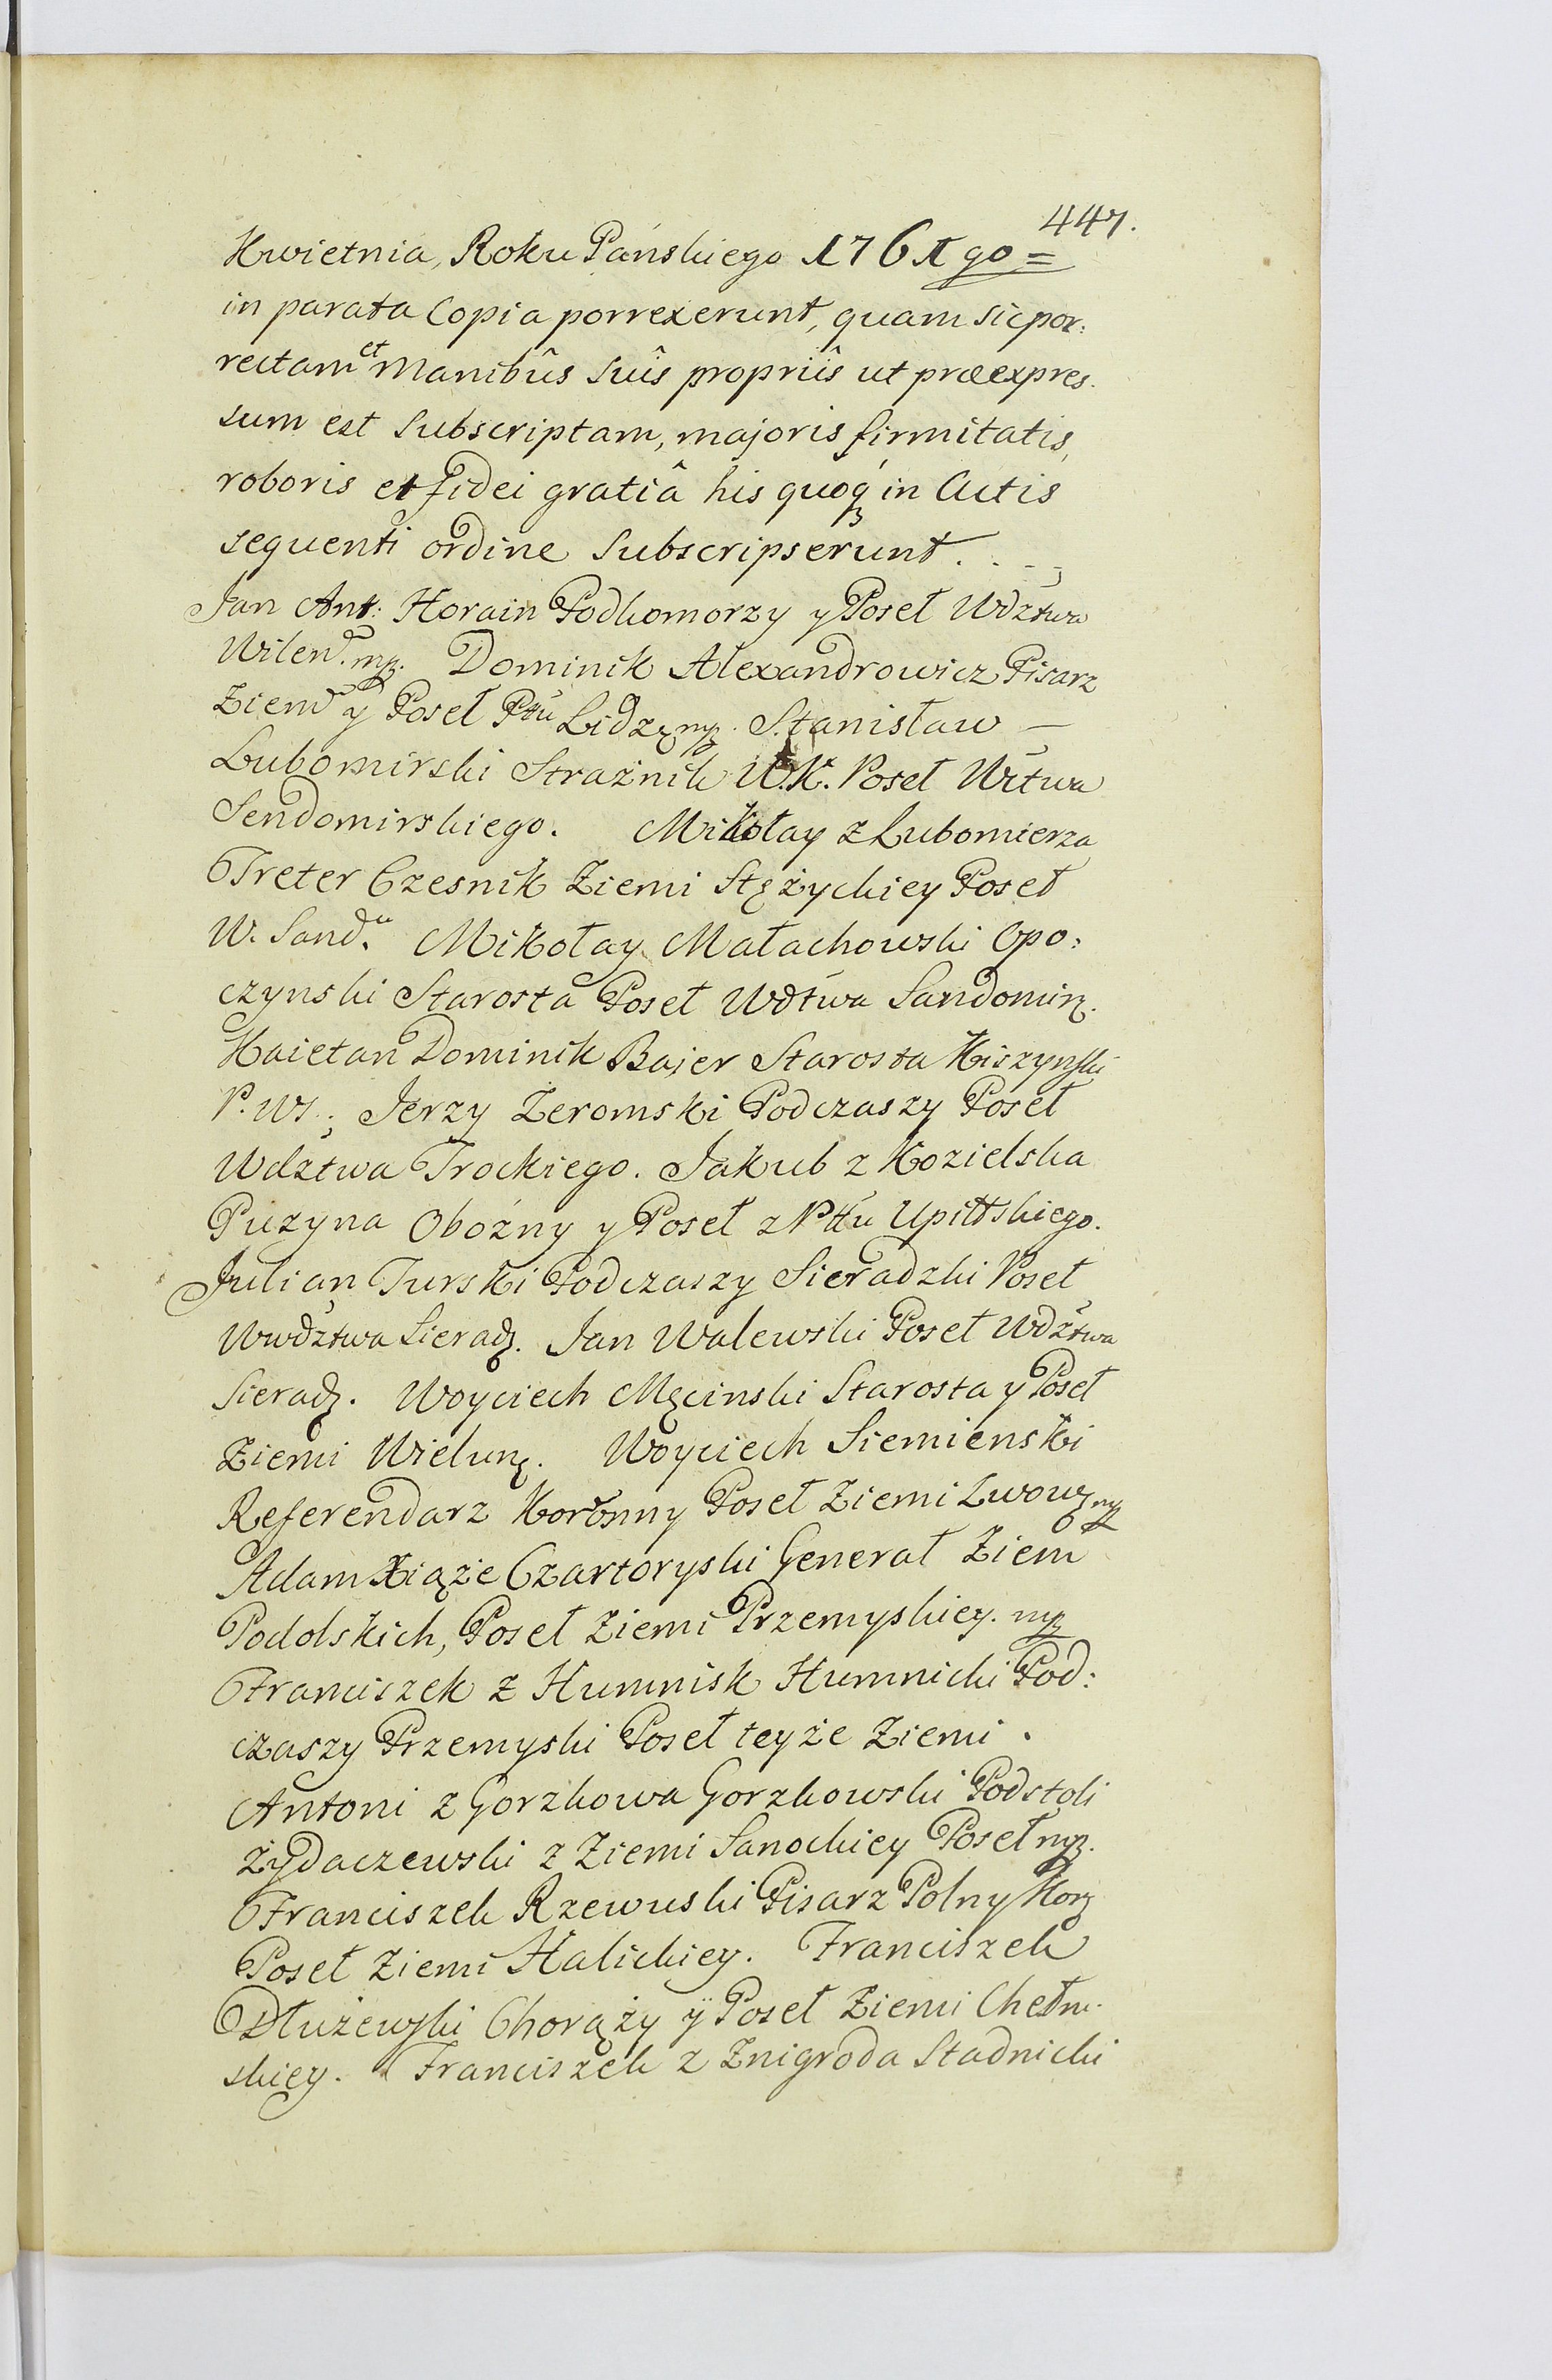 447.
Kwietnia, Roku Pańskiego 1761go =
in parata Copia porrexerunt, quam sic por:
rectam et Manibûs Suîs propriîs ut præexpres.
sum est Subscriptam, majoris firmitatis,
roboris et fidei gratiâ his quoq in Actis
sequenti ordine Subscripserunt. . - -
Jan Ant: Horain Podkomorzy y Poseł Wdztwa
Wilen. mp. Dominik Alexandrowicz Pisarz
Ziem y Poseł Pttu Lidz. mp. Stanisław —
Lubomirski Strażnik W.K. Poseł Wttwa
Sendomirskiego. Mikołay z Lubomierza
Treter Czesnik Ziemi Stężyckiey Poseł
W. Sand. Mikołay Małachowski Opo:
czynski Starosta Poseł Wdtwa Sandomirz.
Kaietan Dominik Bajer Starosta Kiszynski
P. WS. Jerzy Zeromski Podczaszy Poseł
Wdztwa Trockiego. Jakub z Kozielska
Puzyna Oboźny y Poseł z Pttu Upittskiego.
Julian Turski Podczaszy Sieradzki Poseł
Wwdztwa Sieradz. Jan Walewski Poseł Wdztwa
Sieradz. Woyciech Męcinski Starosta y Poseł
Ziemi Wielunz. Woyciech Siemienski
Referendarz Koronny Poseł Ziemi Lwowz mp
Adam Xiąże Czartoryski Generał Ziem
Podolskich, Poseł Ziemi Przemyskiey. mp
Franciszek z Humnisk Humnicki Pod:
czaszy Przemyski Poseł teyże Ziemi .
Antoni z Gorzkowa Gorzkowski Podstoli
Żydaczewski z Ziemi Sanockiey Poseł mp.
Franciszek Rzewuski Pisarz Polny Kor
Poseł Ziemi Halickiey. Franciszek
Dłużewski Chorąży ÿ Poseł Ziemi Chełm.
skiey. Franciszek z Zmigroda Stadnicki